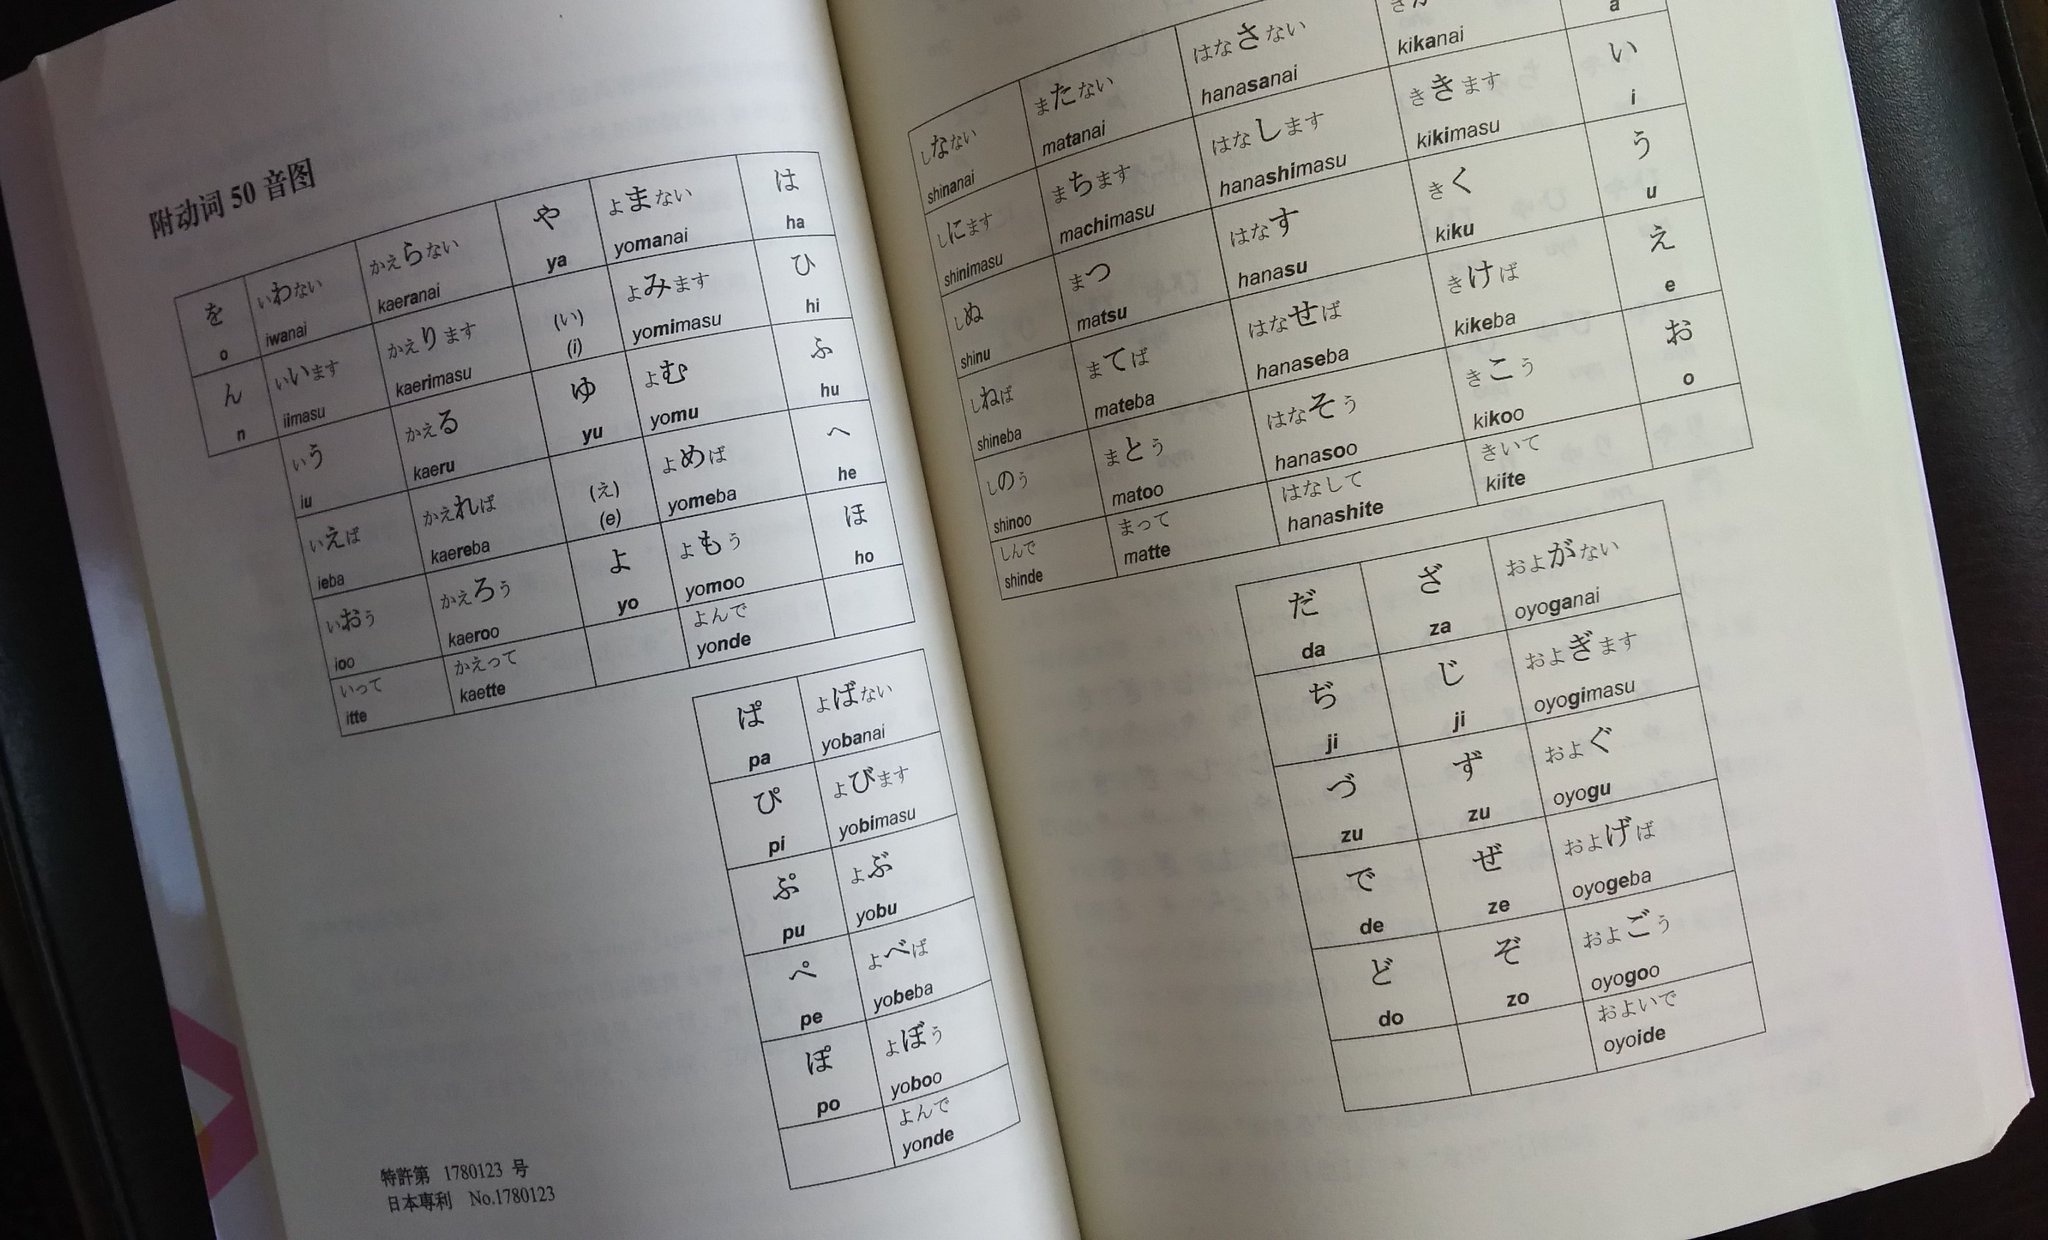 附动词 50 音图
を いわない かえらない や よまない は
o iwanai kaeranai ya yomanai ha
ん いいます かえります (い) よみます ひ
n iimasu kaerimasu (i) yomimasu hi
いう かえる ゆ よむ ふ
iu kaeru yu yomu hu
いえば かえれば (え) よめば へ
ieba kaereba (e) yomeba he
いおう かえろう よ よもう ほ
ioo kaeroo yo yomoo ho
いって かえって よんで
itte kaette yonde
ぱ よばない
pa yobanai
ぴ よびます
pi yobimasu
ぷ よぶ
pu yobu
ぺ よべば
pe yobeba
ぽ よぼう
po yoboo
よんで
yonde
特許第 1780123 号
日本専利 No.1780123
しなない またない はなさない
shinanai matanai hanasanai kikanai a
しにます まちます はなします ききます い
shinimasu machimasu hanashimasu kikimasu i
しぬ まつ はなす きく う
shinu matsu hanasu kiku u
しねば まてば はなせば きけば え
shineba mateba hanaseba kikeba e
しのう まとう はなそう きこう お
shinoo matoo hanasoo kikoo o
しんで まって はなして きいて
shinde matte hanashite kiite
だ ざ およがない
da za oyoganai
ぢ じ およぎます
ji ji oyogimasu
づ ず およぐ
zu zu oyogu
で ぜ およげば
de ze oyogeba
ど ぞ およごう
do zo oyogoo
およいで
oyoide